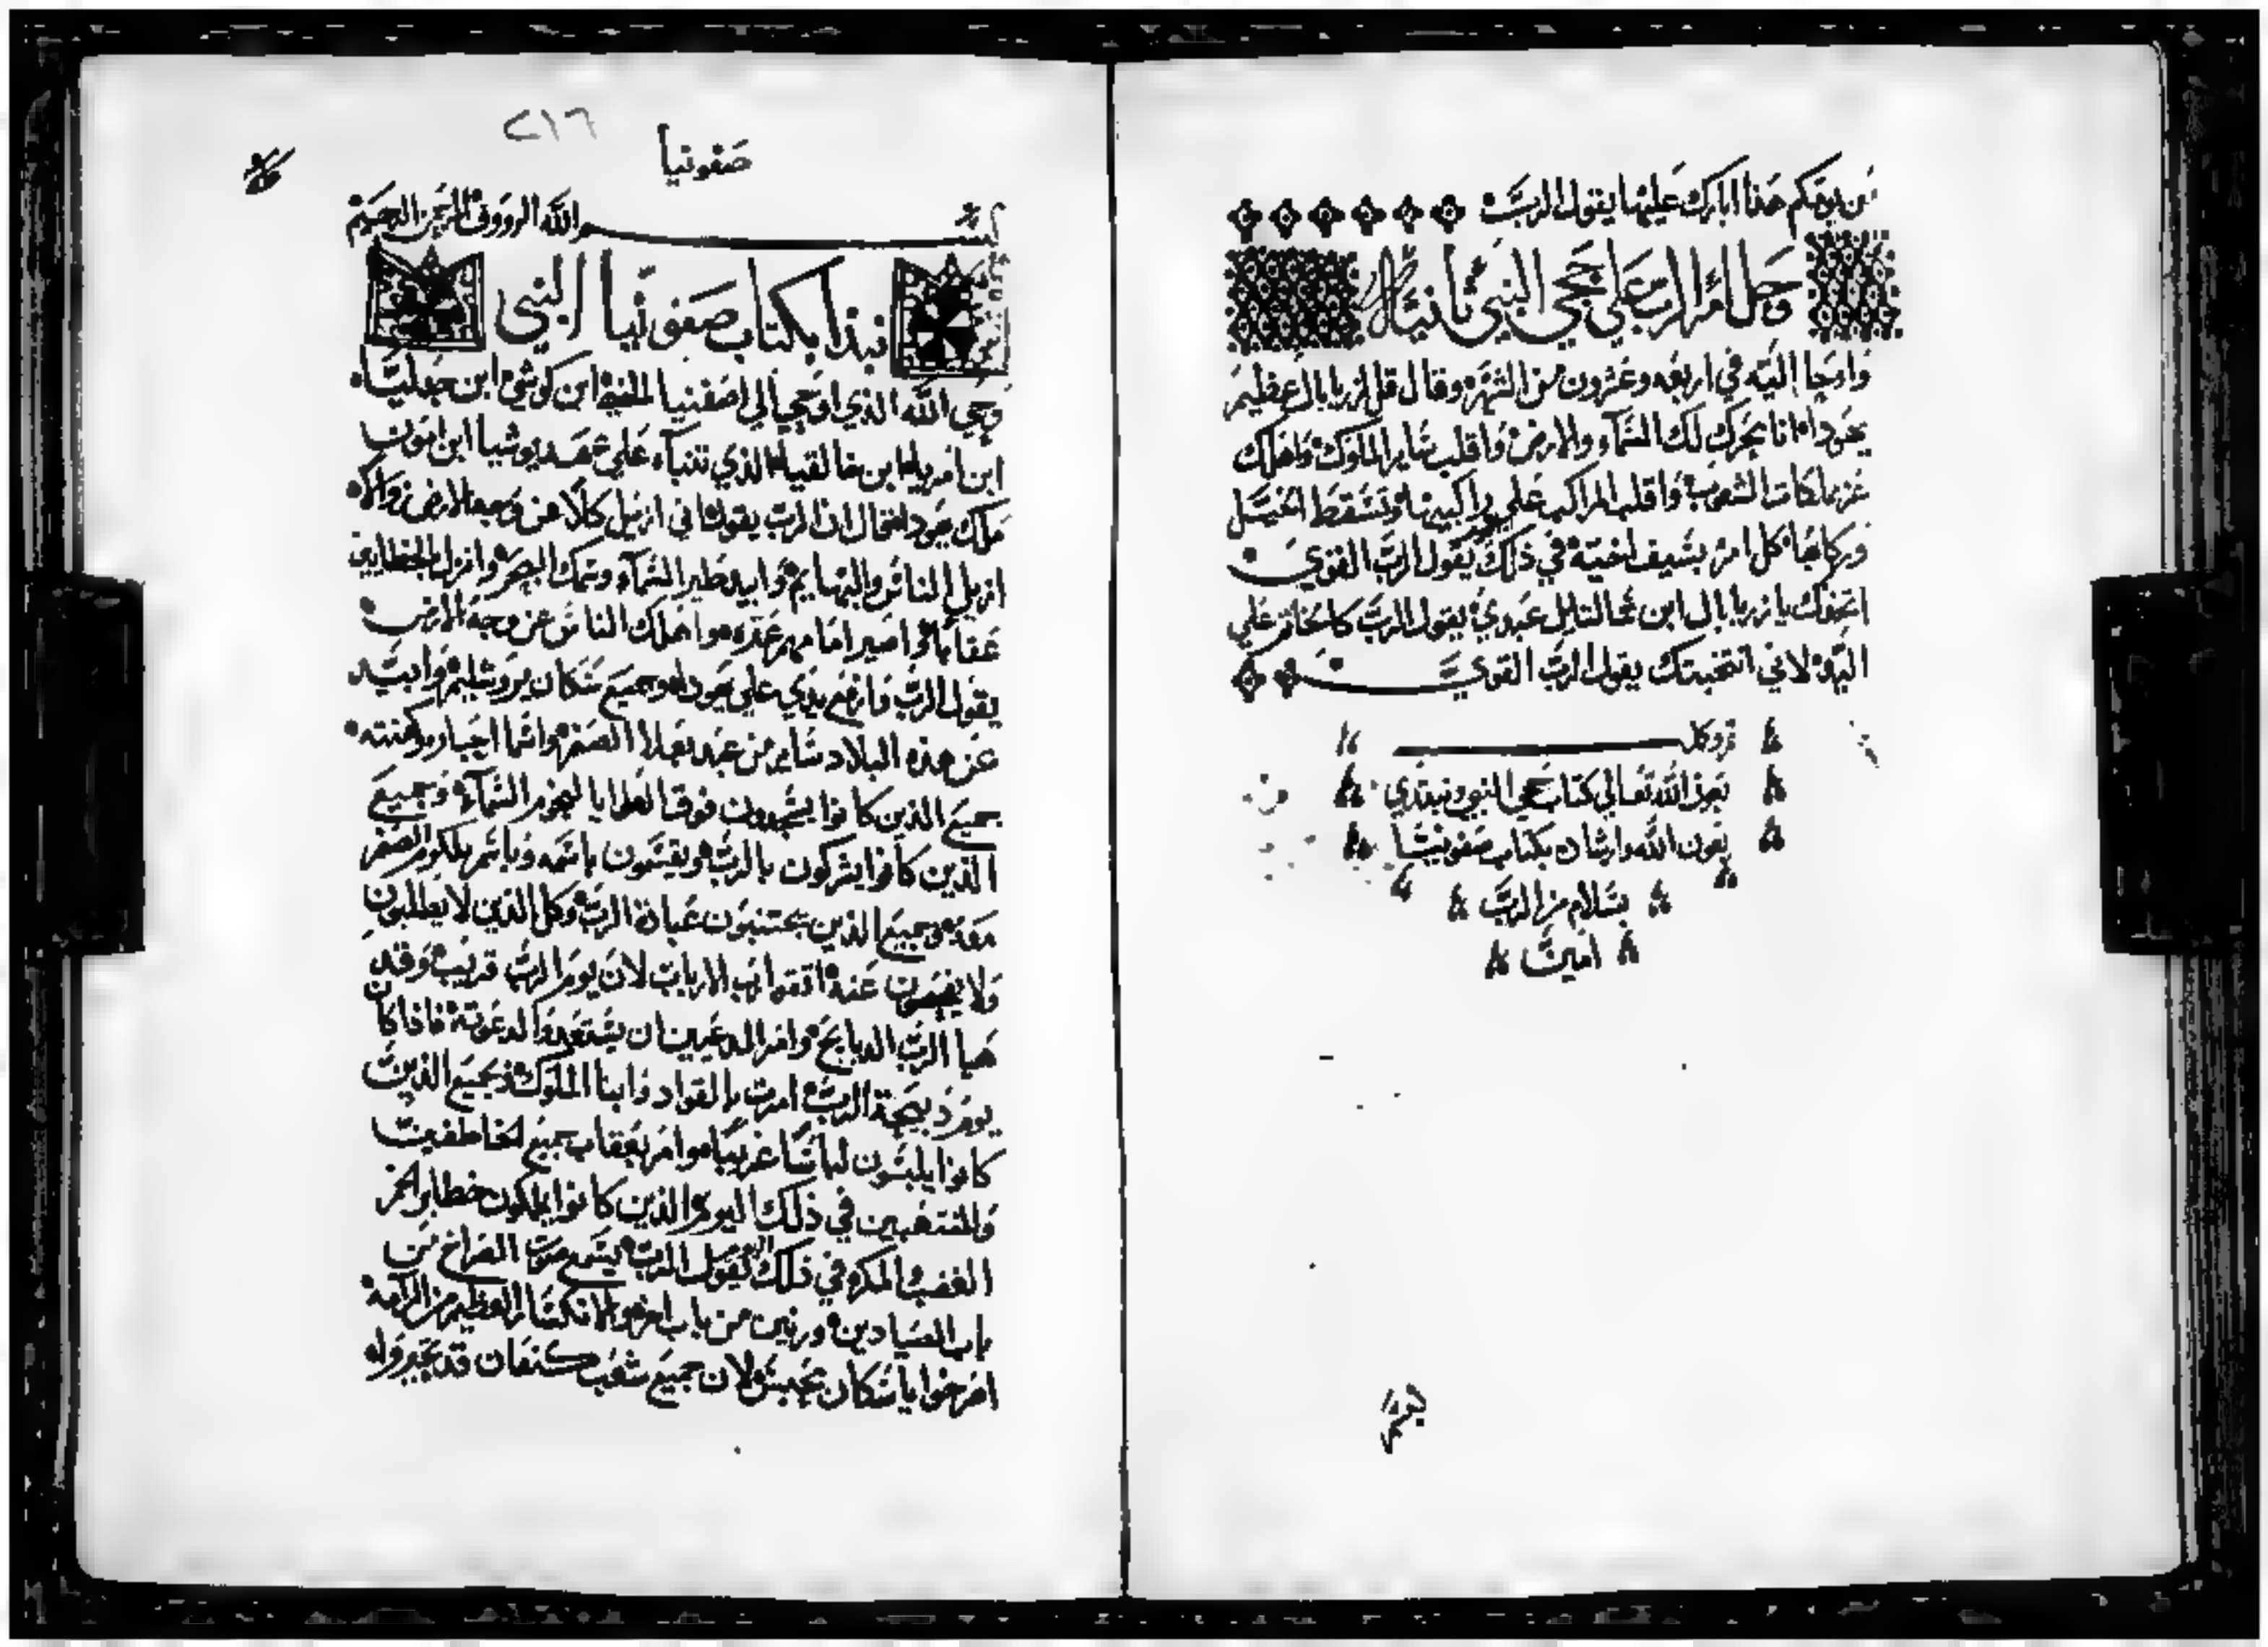 من يومكم هذا ابارك عليها يقول الرب
وحل امر الرب علي حجي النبي ثانيا
واوحا اليه في اربعه وعشرون من الشهر وقال قل لزربابال عظيم
يهودا انا محرك لك السماء والارض واقلب ساير الملوك واهلك
عز ملكات الشعوب واقلب المراكب علي راكبيها وتسقط الخيل
وركابها كل امر بسيف اخيه في ذلك يقول الرب القوي
اتخذك يا زربابال ابن شالتايل عبدي يقول الرب كالخاتم علي
اليد لاني انتخبتك يقول الرب القوي
تم وكل
بعون الله تعالي كتاب حجي النبي ونبتدي
بعون الله وارشاده بكتاب صفونيا
بسلام من الرب
امين
٢١٦
صفونيا
بسم الله الرووف الرحمن الرحيم
نبتدا بكتاب صفونيا النبي
وحي الله الذي اوحي الي اصفنيا ابن كوشي ابن جعليا
ابن امريا ابن خالقيا الذي تنباء علي عهد يوشيا ابن امون
ملك يهودا فقال ان الرب يقول اني ازيل كلا عن وجه الارض والاه
ازيل الناس والبهايم وابيد طير السماء وسمك البحر وانزل بالخطايين
عقابا واصير امامهم عثره واهلك الناس عن وجه الارض
يقول الرب وارفع يدي علي يهودا وجميع سكان يروشليم وابيد
عن هذه البلاد ساير من عبد بعلا الصنم واسما احباره وكهنته
جميع الذين كانوا يسجدون فوق العلايا لنجوم السماء وجميع
الذين كانوا يشركون بالرب ويقسمون باسمه وباسم ملكوم الصنم
معه وجميع الذين يجتنبون عبادة الرب وكل الذين لا يطلبون
ولا يفحصون عنه اتقوا رب الارباب لان يوم الرب قريب وقد
هيا الرب الدبايح وامر المدعيين ان يستعدوا لدعوته فاذا كان
يوم دبيحة الرب امرت بالقواد وابنا الملوك وبجميع الذين
كانوا يلبسون لباسا غريبا وامر بعقاب جميع الخاطفين
والمنتهبين في ذلك اليوم الذين كانوا يملكون خطابر اخر
الغضب والمكر في ذلك اليوم يقول الرب يسمع صوت الصراخ من
باب الصيادين ورنين من باب اخر والانكسار العظيم من الرامه
اصرخوا يا سكان لان جميع شعب كنعان قد